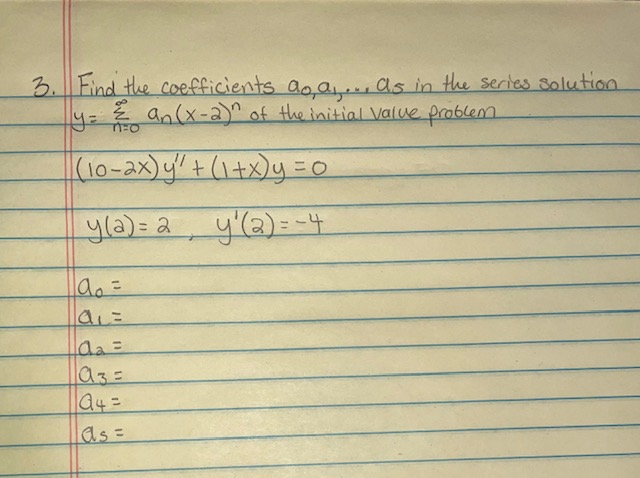 3. Find the coefficients a₀,a₁,... a₅ in the series solution
y = ∞Σn=0 aₙ(x-2)ⁿ of the initial value problem
(10-2x)y'' + (1+x)y = 0
y(2) = 2 , y'(2) = -4
a₀ =
a₁ =
a₂ =
a₃ =
a₄ =
a₅ =